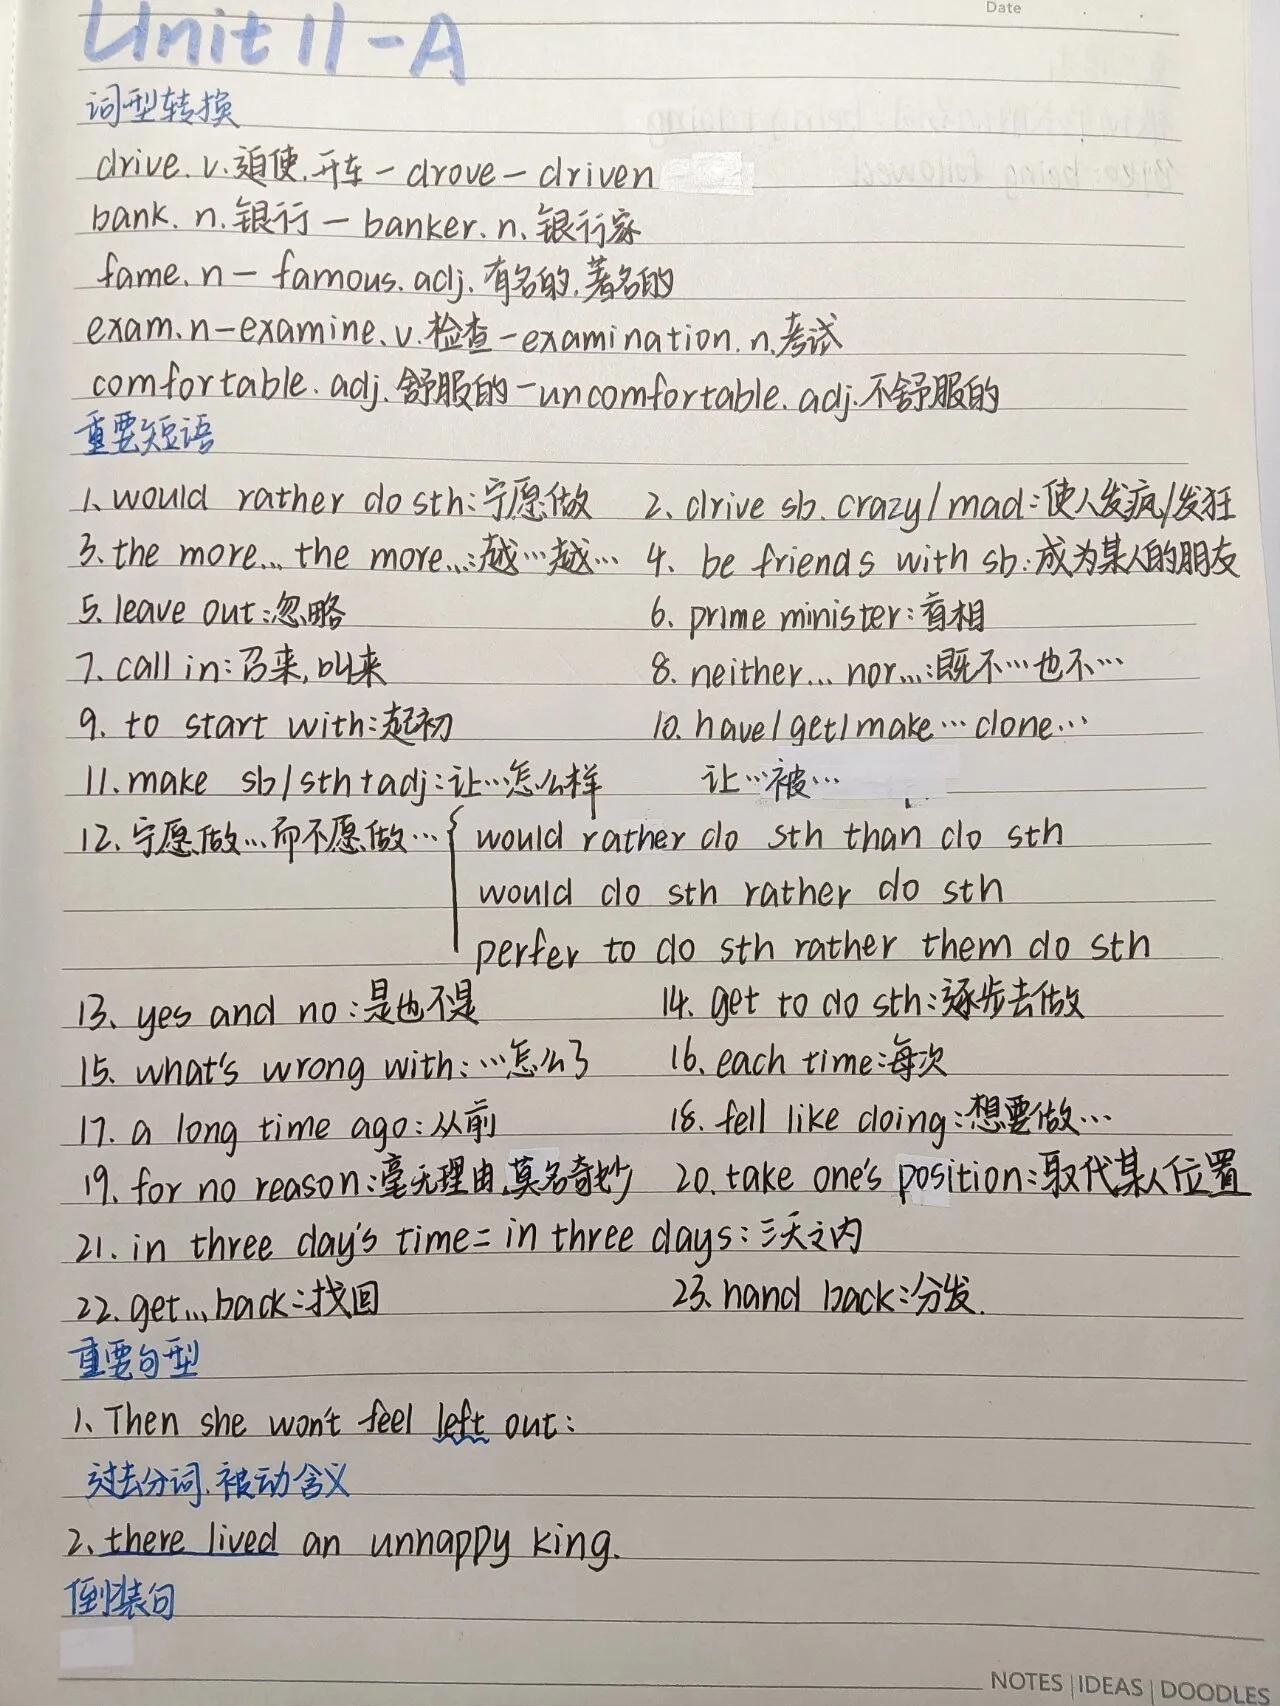 Date
Unit 11-A
词型转换
drive. v. 迫使.开车-drove-driven
bank. n. 银行-banker. n. 银行家
fame. n-famous. adj. 有名的.著名的
exam. n-examine. v. 检查-examination. n. 考试
comfortable. adj. 舒服的-uncomfortable. adj. 不舒服的
重要短语
1. would rather do sth:宁愿做 2. drive sb. crazy/mad:使人发疯/发狂
3. the more... the more...:越…越… 4. be friends with sb:成为某人的朋友
5. leave out:忽略 6. prime minister:首相
7. call in:召来,叫来 8. neither... nor...:既不…也不…
9. to start with:起初 10. have/get/make…done…
11. make sb/sth+adj:让…怎么样 让…被…
12. 宁愿做…而不愿做… { would rather do sth than do sth
would do sth rather do sth
perfer to do sth rather them do sth
13. yes and no:是也不是 14. get to do sth:逐步去做
15. what's wrong with:…怎么了 16. each time:每次
17. a long time ago:从前 18. fell like doing:想要做…
19. for no reason:毫无理由.莫名奇妙 20. take one's position:取代某人位置
21. in three day's time=in three days:三天之内
22. get...back:找回 23. hand back:分发.
重要句型
1. Then she won't feel left out:
过去分词.被动含义
2. there lived an unhappy king.
倒装句
NOTES | IDEAS | DOODLES